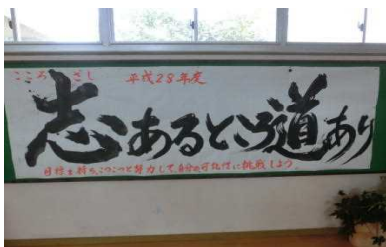 こころざし 平成28年度
志あるところ道あり
目標を持ち、こつこつと努力して、自分の可能性に挑戦しよう。